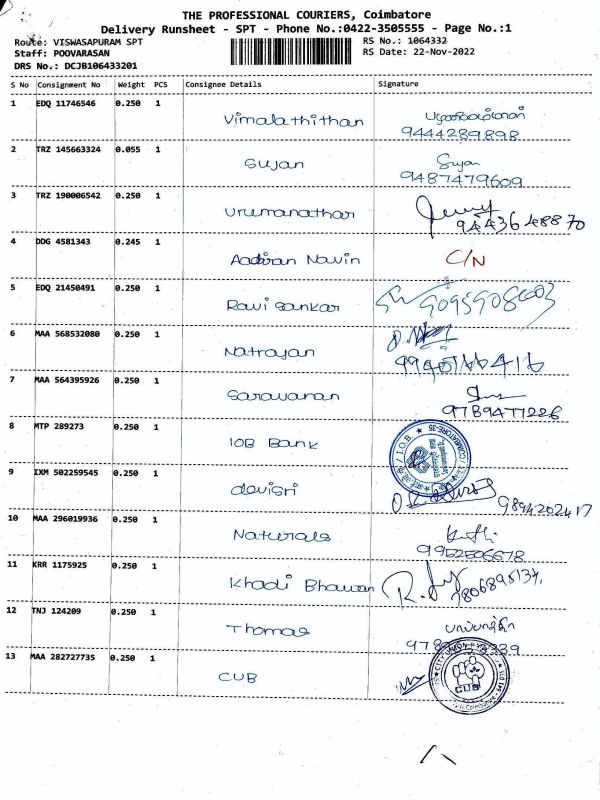 THE PROFESSIONAL COURIERS, Coimbatore
Delivery Runsheet - SPT - Phone No.:0422-3505555 - Page No.:1
Route: VISWASAPURAM SPT
RS No.: 1064332
Staff: POOVARASAN
RS Date: 22-Nov-2022
DRS No.: DCJB106433201
S No Consignment No Weight PCS Consignee Details Signature
1 EDQ 11746546 0.250 1 Vimalathithan
9444289898
2 TRZ 145663324 0.055 1 Sujan Sujan
9487479609
3 TRZ 190006542 0.250 1 Urumanathar
9443648870
4 DDG 4581343 0.245 1 Navin C/N
5 EDQ 21450491 0.250 1 Ravi Sankar
6 MAA 568532080 0.250 1 Natrajan
7 MAA 564395926 0.250 1 Saravanan
9789477226
8 MTP 289273 0.250 1 IOB Bank
9 IXM 502259545 0.250 1 devisri
9894202417
10 MAA 296019936 0.250 1 Naturals
9952506678
11 KRR 1175925 0.250 1 Khadi Bhawan
12 TNJ 124209 0.250 1 Thomas
13 MAA 282727735 0.250 1 CUB
CUB